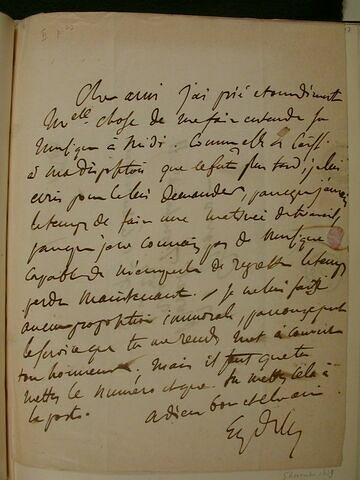 Cher ami j'ai prié etourdiment
Melle chose de me faire entendre sa
musique à midi. Comme elle a laissé
à ma disposition que ce fut plus tard, je lui
ecris pour le lui demander, parceque j'aurai
le temps de faire une matinée de travail,
parceque je ne connais pas de musique
capable de m'empecher de regretter le temps
perdu maintenant. Je ne lui fais
aucune proposition immorale, parconsequent
le service que tu me rends met à couvert
ton honneur. mais il faut que tu
mettes le numero et que tu mettes cela à
la poste.
adieu bon et
Eug Delx